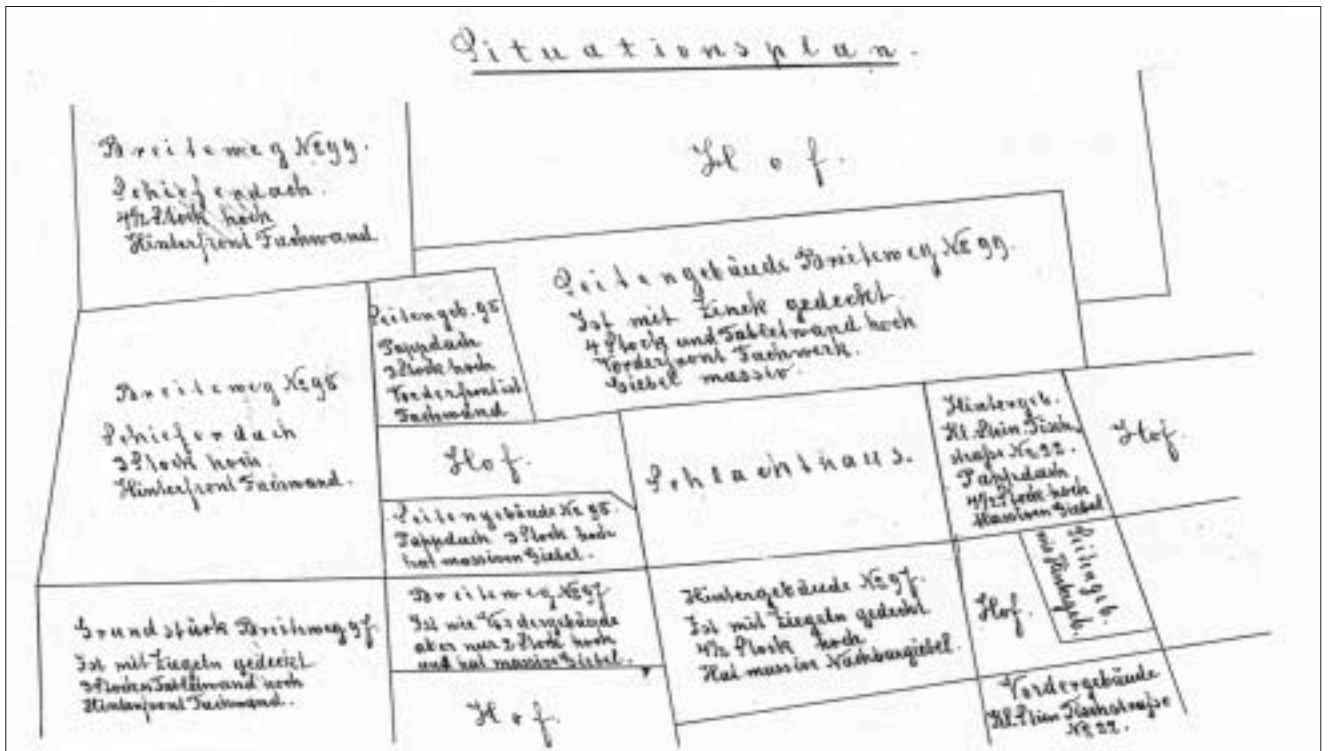 Situationsplan.
Breiteweg № 99.
Schieferdach.
4½ Stock hoch
Hinterfront Fachwand.
Hof.
Seitengebäude Breiteweg № 99.
Ist mit Zinck gedeckt.
4 Stock und Tabletwand hoch
Vorderfront Fachwerk.
Giebel massiv.
Seitengeb. 98
Pappdach
3 Stock hoch
Vorderfront ist
Fachwand
Breiteweg № 98
Schieferdach
3 Stock hoch
Hinterfront Fachwand.
Hof.
Schlachthaus.
Hintergeb.
Kl. Stein Tisch
straße № 22.
Pappdach
4½ Stock hoch
Massiven Giebel
Hof.
Seitengebäude № 98.
Pappdach 3 Stock hoch
hat massiven Giebel.
Grundstück Breiteweg 97.
Ist mit Ziegeln gedeckt
3 Stock Tabletwand hoch
Hinterfront Fachwand.
Breiteweg № 97
Ist wie Vordergebäude
aber nur 2 Stock hoch
und hat massiv Giebel.
Hof.
Hintergebäude № 97.
Ist mit Ziegeln gedeckt
4½ Stock hoch
Hat massive Nachbargiebel.
Hof.
Seitengeb.
wie Hintergeb.
Vordergebäude
Kl. Stein Tischstraße
№ 22.